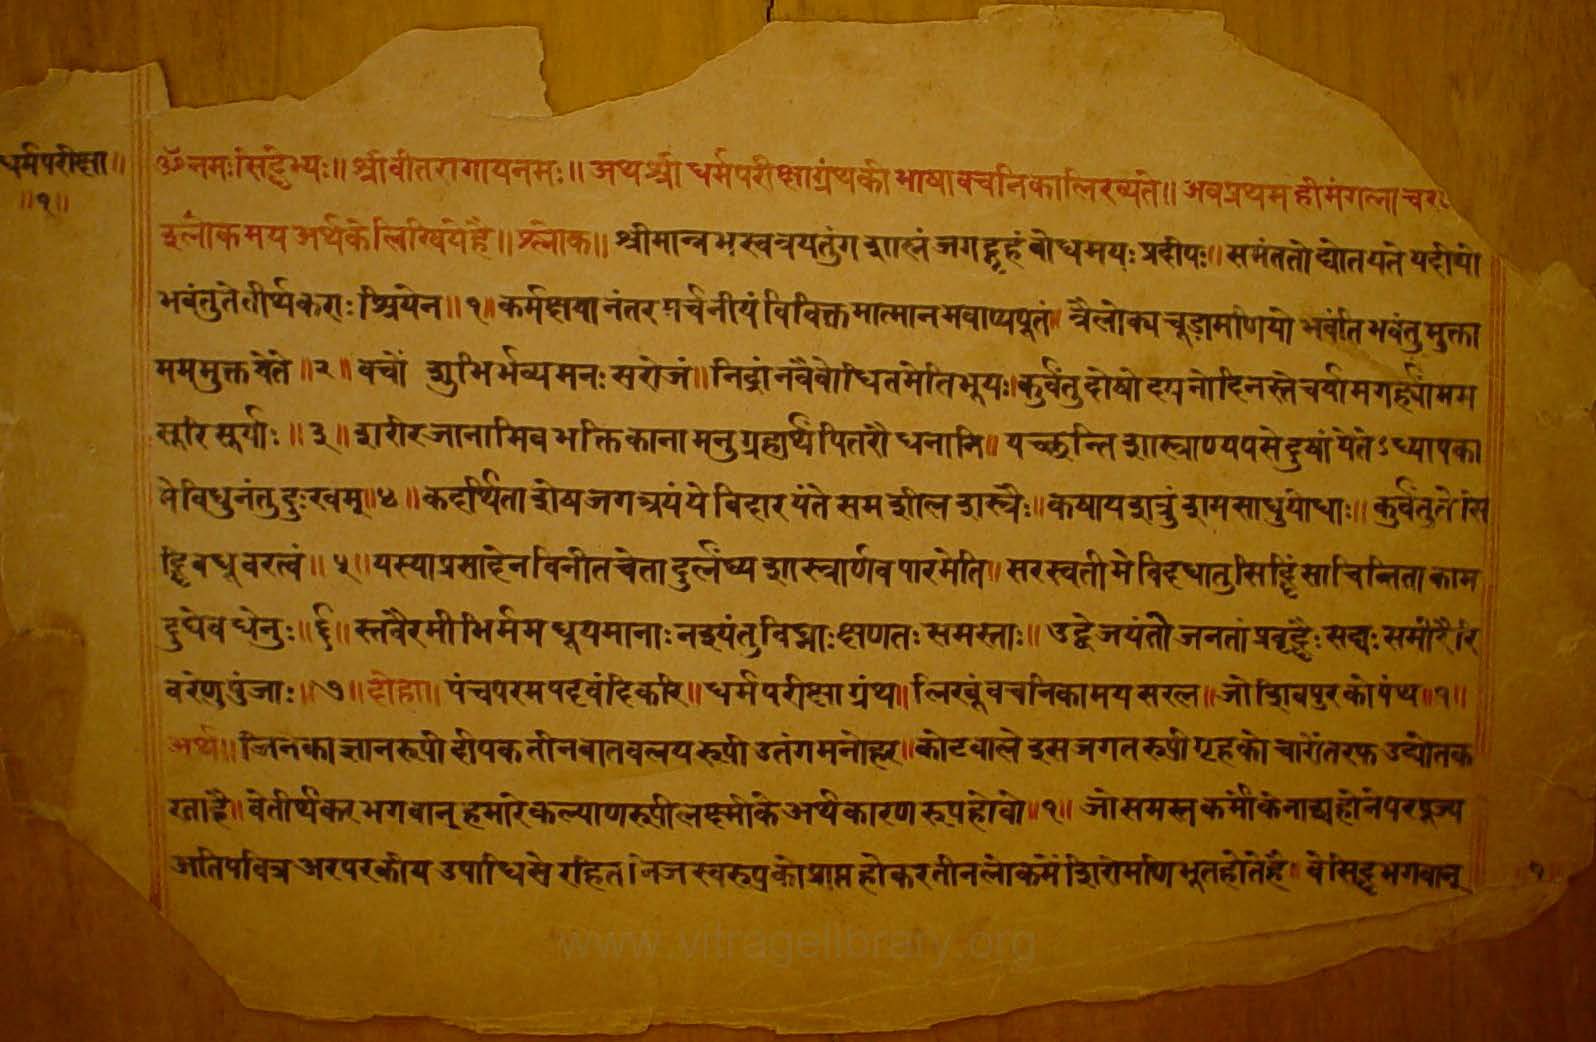 धर्मपरीक्षा॥
॥१॥
ॐनमःसिद्धेभ्यः॥ श्रीवीतरागायनमः॥ अथश्री धर्मपरीक्षाग्रंथकी भाषा वचनिकालिख्यते॥ अवप्रथम हीमंगलाचर
श्लोकमय अर्थकेलिखियेहै॥ श्लोक॥ श्रीमान्नभस्वत्रयतुंग शालं जगद्गृहं बोधमयः प्रदीपः॥ समंततो द्योतयते यदीयो
भवंतुतेतीर्थकराः श्रियेन॥ १॥ कर्मक्षयानंतर मर्चनीयं विविक्तमात्मानमवाप्यपूतं॥ त्रैलोक्य चूडामणियो भवंति भवंतु मुक्ता
मममुक्तयेते॥ २॥ वचों शुभिर्भव्यमनः सरोजं॥ निद्रां नयैर्वोधितमेतिभूयः॥ कुर्वंतु दोषोदयनोदिनस्ते चर्यामगर्ह्यामम
सूरिसूर्याः॥ ३॥ शरीरजानामिव भक्तिकानामनुग्रहार्थं पितरौ धनानि॥ यच्छन्ति शास्त्राण्यपसेदुषां येतेऽध्यापका
मेविधुनंतु दुःखम्॥ ४॥ कदर्थिता शेष जगत्त्रयं ये बिदारयंते समशील शस्त्रैः॥ कषायशत्रुं शमसाधुयोधाः॥ कुर्वंतुते सि
द्धिबधूवरत्वं॥ ५॥ यस्याप्रसादेन विनीतचेता दुर्लंघ्य शास्त्रार्णवपारमेति॥ सरस्वतीमे विदधातु सिद्धिं साचिन्तिता काम
दुघेव धेनुः॥ ६॥ स्तवैरमीभिर्मम धूयमानाः नश्यंतु विघ्नाः क्षणतः समस्ताः॥ उद्वेजयंतो जनतां प्रवृद्धैः सद्यः समीरैरि
वरेणुपुंजाः॥ ७॥ दोहा॥ पंचपरमपदवंदिकरि॥ धर्मपरीक्षा ग्रंथ॥ लिखूं वचनिकामय सरल॥ जो शिवपुर को पंथ॥ १॥
अर्थ॥ जिनका ज्ञानरूपी दीपक तीनवातवलयरूपी उतंग मनोहर॥ कोटवाले इस जगतरूपी गृहको चारोंतरफ उद्योतक
रताहै॥ वेतीर्थंकर भगवान् हमारे कल्याणरूपीलक्ष्मीके अर्थ कारणरूपहोवो॥ १॥ जो समस्त कर्मोंकेनाशहोनेपरपूज्य
अतिपवित्र अरपरकीय उपाधिसे रहित निज स्वरूपको प्राप्त होकर तीनलोकमें शिरोमणि भूतहोतेहैं॥ वे सिद्ध भगवान्
१
www.vitragelibrary.org